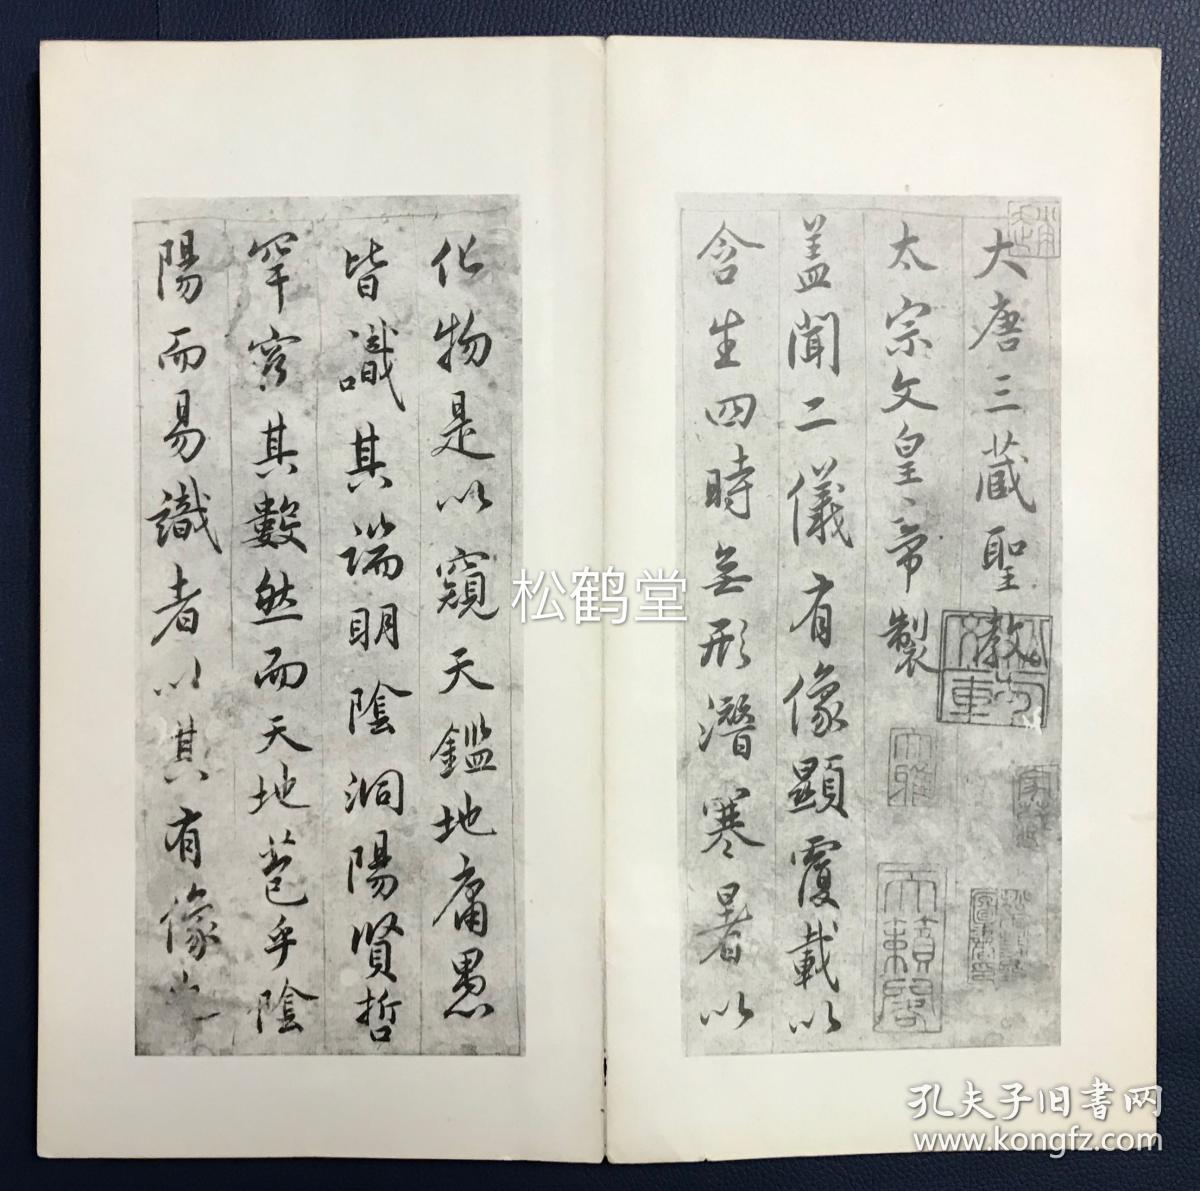 大唐三藏聖教
太宗文皇帝製
盖聞二儀有像顯覆載以
含生四時無形潛寒暑以
化物是以窺天鑑地庸愚
皆識其端明陰洞陽賢哲
罕窮其數然而天地苞乎陰
陽而易識者以其有像也
松鹤堂
孔夫子旧书网
www.kongfz.com